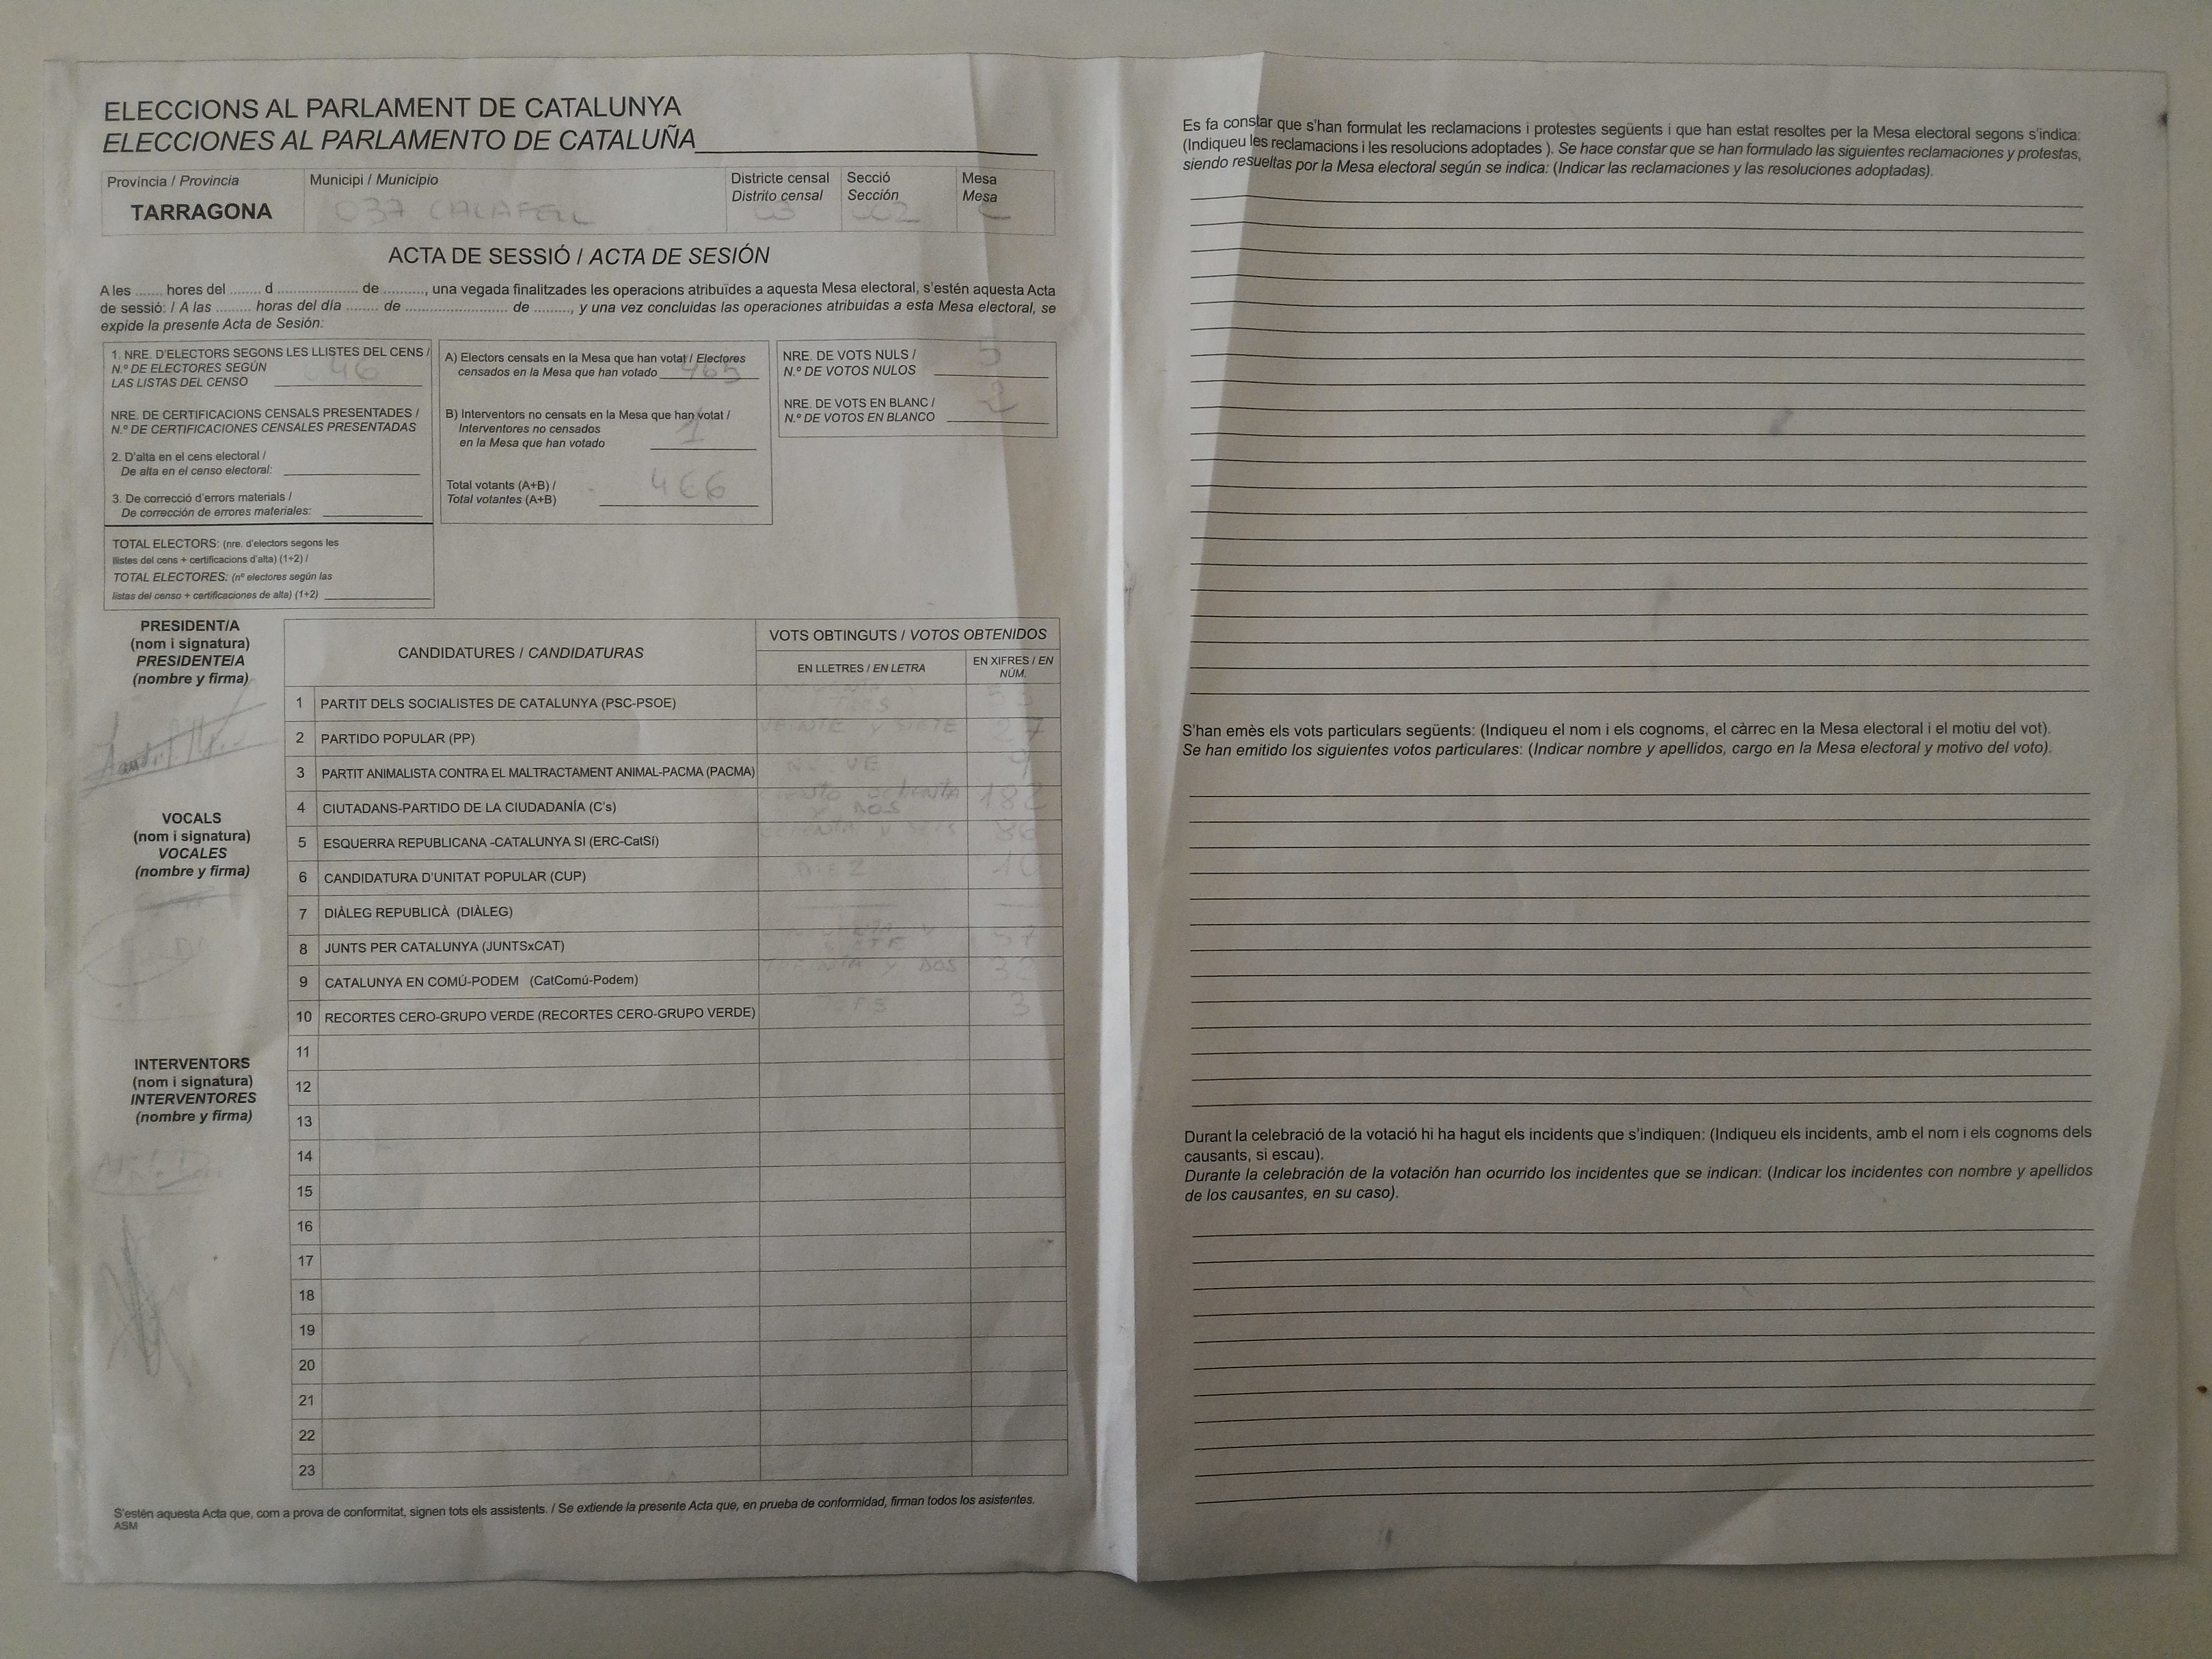 ELECCIONS AL PARLAMENT DE CATALUNYA
ELECCIONES AL PARLAMENTO DE CATALUÑA
Província / Provincia
TARRAGONA
Municipi / Municipio
037 CALAFELL
Districte censal
Distrito censal
03
Secció
Sección
002
Mesa
Mesa
ACTA DE SESSIÓ / ACTA DE SESIÓN
A les ........ hores del ........ d .................... de ........., una vegada finalitzades les operacions atribuïdes a aquesta Mesa electoral, s'estén aquesta Acta
de sessió: / A las ........ horas del día ........ de .................... de ........., y una vez concluidas las operaciones atribuidas a esta Mesa electoral, se
expide la presente Acta de Sesión:
1. NRE. D'ELECTORS SEGONS LES LLISTES DEL CENS /
N.º DE ELECTORES SEGÚN
LAS LISTAS DEL CENSO
NRE. DE CERTIFICACIONS CENSALS PRESENTADES /
N.º DE CERTIFICACIONES CENSALES PRESENTADAS
2. D'alta en el cens electoral /
De alta en el censo electoral:
3. De correcció d'errors materials /
De corrección de errores materiales:
TOTAL ELECTORS: (nre. d'electors segons les
llistes del cens + certificacions d'alta) (1+2) /
TOTAL ELECTORES: (nº electores según las
listas del censo + certificaciones de alta) (1+2)
A) Electors censats en la Mesa que han votat / Electores
censados en la Mesa que han votado 465
B) Interventors no censats en la Mesa que han votat /
Interventores no censados
en la Mesa que han votado 1
Total votants (A+B) /
Total votantes (A+B) 466
NRE. DE VOTS NULS /
N.º DE VOTOS NULOS 5
NRE. DE VOTS EN BLANC /
N.º DE VOTOS EN BLANCO 2
PRESIDENT/A
(nom i signatura)
PRESIDENTE/A
(nombre y firma)
VOCALS
(nom i signatura)
VOCALES
(nombre y firma)
INTERVENTORS
(nom i signatura)
INTERVENTORES
(nombre y firma)
CANDIDATURES / CANDIDATURAS
VOTS OBTINGUTS / VOTOS OBTENIDOS
EN LLETRES / EN LETRA
EN XIFRES / EN NÚM.
1 PARTIT DELS SOCIALISTES DE CATALUNYA (PSC-PSOE)
2 PARTIDO POPULAR (PP) VEINTE Y SIETE 27
3 PARTIT ANIMALISTA CONTRA EL MALTRACTAMENT ANIMAL-PACMA (PACMA) NUEVE 9
4 CIUTADANS-PARTIDO DE LA CIUDADANÍA (C's) 182
5 ESQUERRA REPUBLICANA -CATALUNYA SI (ERC-CatSí) 86
6 CANDIDATURA D'UNITAT POPULAR (CUP) DIEZ 10
7 DIÀLEG REPUBLICÀ (DIÀLEG)
8 JUNTS PER CATALUNYA (JUNTSxCAT) 57
9 CATALUNYA EN COMÚ-PODEM (CatComú-Podem) TREINTA Y DOS 32
10 RECORTES CERO-GRUPO VERDE (RECORTES CERO-GRUPO VERDE) TRES 3
11
12
13
14
15
16
17
18
19
20
21
22
23
S'estén aquesta Acta que, com a prova de conformitat, signen tots els assistents. / Se extiende la presente Acta que, en prueba de conformidad, firman todos los asistentes.
ASM
Es fa constar que s'han formulat les reclamacions i protestes següents i que han estat resoltes per la Mesa electoral segons s'indica:
(Indiqueu les reclamacions i les resolucions adoptades ). Se hace constar que se han formulado las siguientes reclamaciones y protestas,
siendo resueltas por la Mesa electoral según se indica: (Indicar las reclamaciones y las resoluciones adoptadas).
S'han emès els vots particulars següents: (Indiqueu el nom i els cognoms, el càrrec en la Mesa electoral i el motiu del vot).
Se han emitido los siguientes votos particulares: (Indicar nombre y apellidos, cargo en la Mesa electoral y motivo del voto).
Durant la celebració de la votació hi ha hagut els incidents que s'indiquen: (Indiqueu els incidents, amb el nom i els cognoms dels
causants, si escau).
Durante la celebración de la votación han ocurrido los incidentes que se indican: (Indicar los incidentes con nombre y apellidos
de los causantes, en su caso).